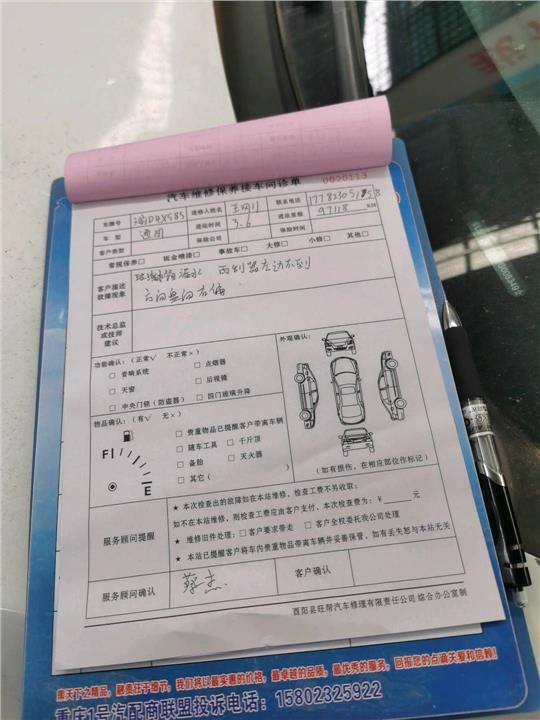 汽车维修保养接车问诊单
0020113
车牌号 渝D4X585 送修人姓名 联系电话
车 型 通用 进站时间 3.6 进站里程 97118 KM
客户类型 保险公司 保险时间
常规保养□ 钣金喷漆□ 事故车□ 大修□ 小修□ 其他□
客户描述
故障现象
雨刮器左边不到
方向盘向右偏
技术总监
或技师
建议
功能确认：（正常√ 不正常×） 外观确认：
□ 音响系统 □ 点烟器
□ 天窗 □ 后视镜
□ 中央门锁（防盗器） □ 四门玻璃升降
物品确认：（有√ 无×）
□ 贵重物品已提醒客户带离车辆
□ 随车工具 □ 千斤顶
□ 备胎 □ 灭火器
□ 其它（ ）
F
E
（如有损伤，在相应部位作标记）
服务顾问提醒
★ 本次检查出的故障如在本站维修，检查工费不另收取；
如不在本站维修，则检查工费应由客户支付，本次检查费为：¥ 元
★ 维修旧件处理：□ 客户要求带走 □ 客户全权委托我公司处理
★ 本站已提醒客户将车内贵重物品带离车辆并妥善保管，如有丢失恕与本站无关
服务顾问确认 蔡杰 客户确认
酉阳县旺帮汽车修理有限责任公司 综合办公室制
集天下之精品，融责任于细节，我们将以最实惠的价格，最卓越的品质，最优秀的服务，回报您的点滴关爱和信赖！
重庆1号汽配商联盟投诉电话：15802325922